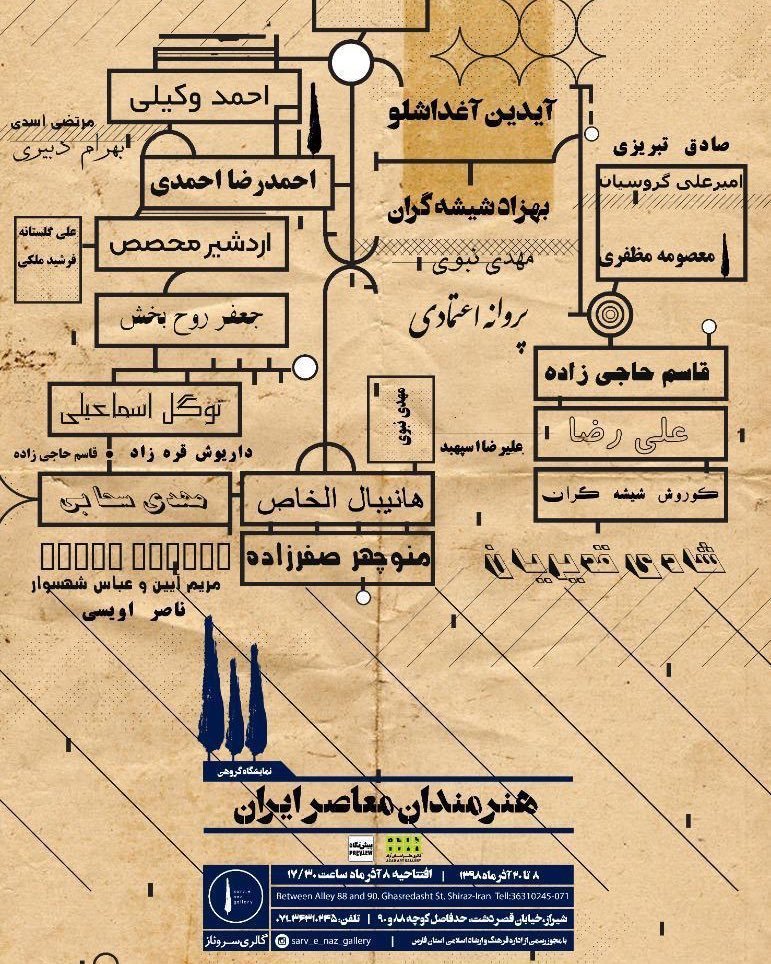 احمد وکیلی
مرتضی اسدی
بهرام دبیری
احمدرضا احمدی
علی گلستانه
فرشید ملکی
اردشیر محصص
جعفر روح بخش
توکل اسماعیلی
داریوش قره زاد
قاسم حاجی زاده
مهدی سحابی
هانیبال الخاص
منوچهر صفرزاده
مریم آیین و عباس شهسوار
ناصر اویسی
آیدین آغداشلو
بهزاد شیشه گران
مهدی نبوی
پروانه اعتمادی
مهدی نبوی
علیرضا اسپهبد
صادق تبریزی
امیرعلی گروسیان
معصومه مظفری
قاسم حاجی زاده
علی رضا
کوروش شیشه گران
نمایشگاه گروهی
هنرمندان معاصر ایران
پیش‌نگاه
PREVIEW
۸ تا ۲۰ آذر ماه ۱۳۹۸ | افتتاحیه ۸ آذر ماه ساعت ۱۷/۳۰
Between Alley 88 and 90, Ghasredasht St, Shiraz-Iran. Tell:36310245-071
شیراز، خیابان قصردشت، حدفاصل کوچه ۸۸ و ۹۰ | تلفن:
با مجوز رسمی از اداره فرهنگ و ارشاد اسلامی استان فارس | sarv_e_naz_gallery
گالری سروناز